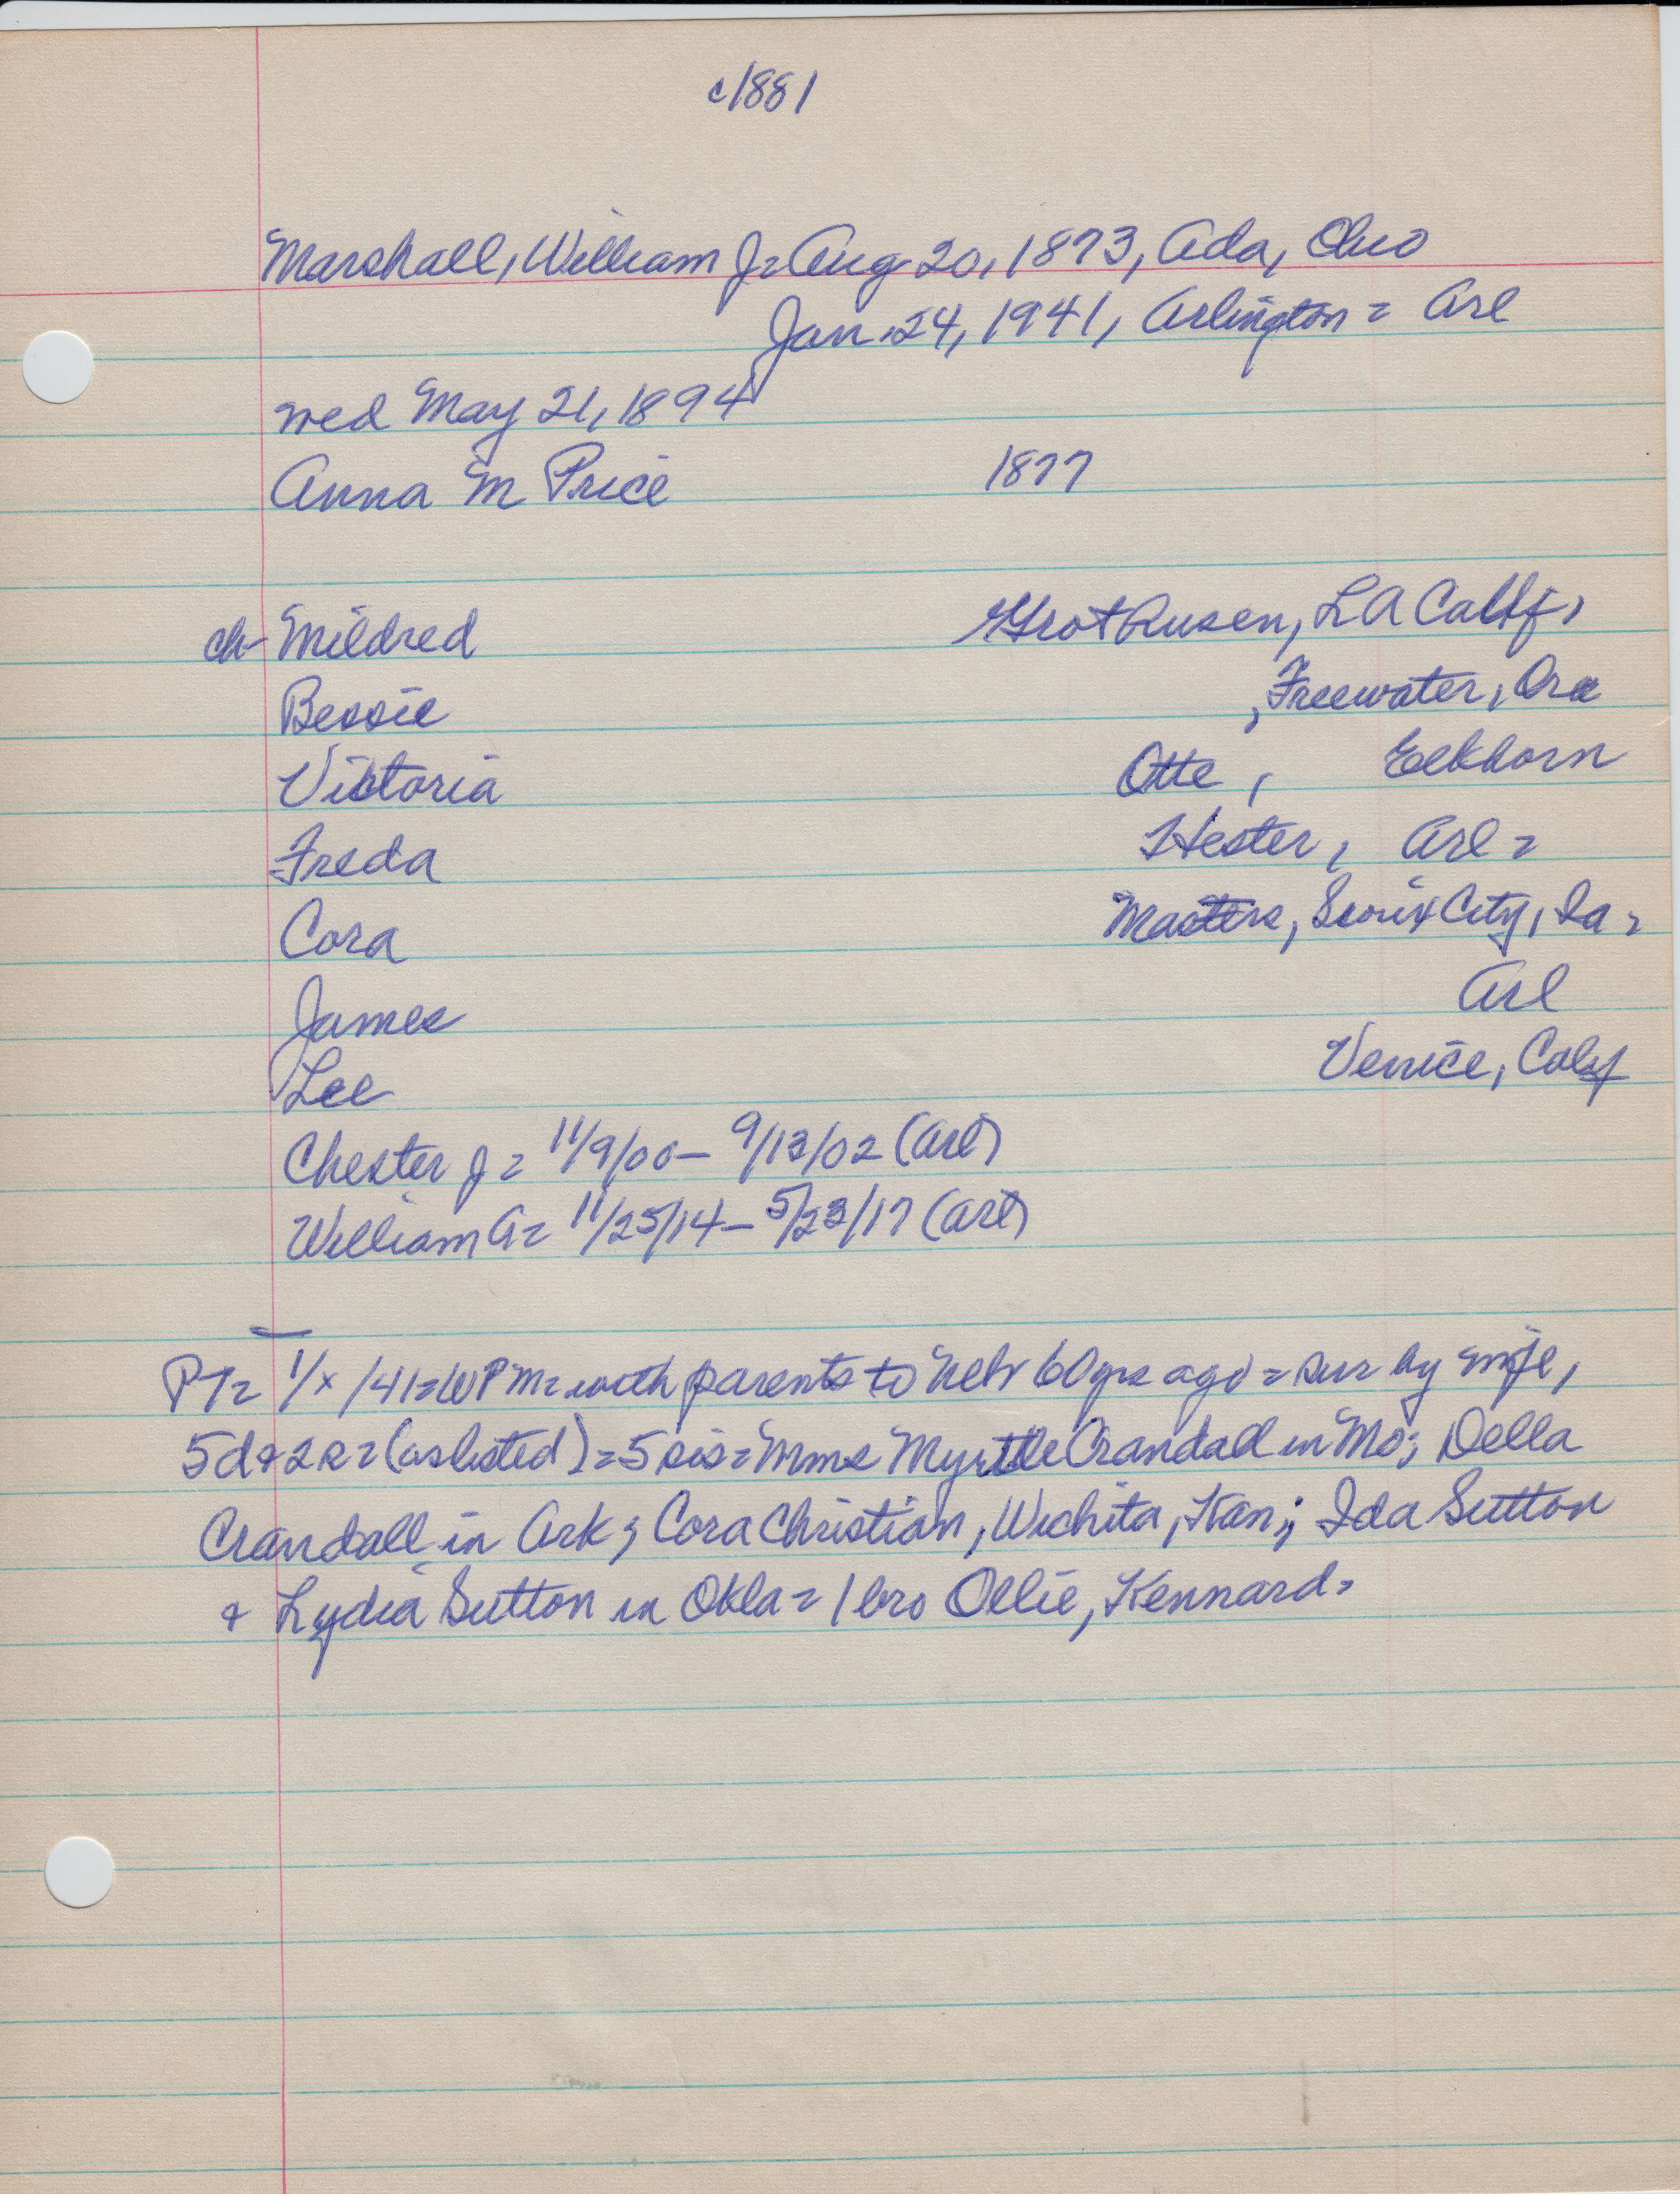 c1881
Marshall, William J= Aug 20, 1873, Ada, Ohio
Jan 24, 1941, Arlington = Arl
wed May 21, 1894
Anna M Price 1877
ch- Mildred Grothusen, LA Calif,
Bessie , Freewater, Ore
Victoria Otte, Elkhorn
Freda Hester, Arl =
Cora Masters, Sioux City, Ia =
James Arl
Lee Venice, Calif
Chester J = 11/9/00 - 9/13/02 (Arl)
William A = 11/25/14 - 5/23/17 (Arl)
PT = 1/x /41 = WPM = with parents to Neb 60 yrs ago = sur by wife,
5d & 2s = (as listed) = 5 sis = Mmes Myrtle Crandall in Mo; Della
Crandall in Ark; Cora Christian, Wichita, Kan; Ida Sutton
& Lydia Sutton in Okla = 1 bro Ollie, Kennard =